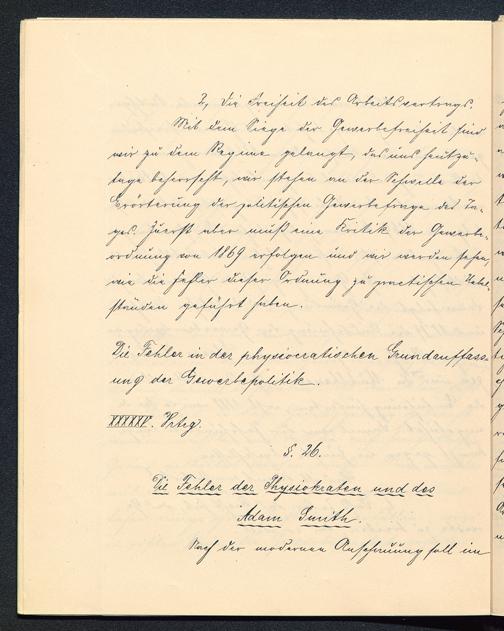 2, die Freiheit des Arbeitsvertrags.
Mit dem Siege der Gewerbefreiheit sind
wir zu dem Regime gelangt, das uns heutzu-
tage beherrscht, wir stehen an der Schwelle der
Erörterung der politischen Gewerbefrage des Ta-
ges. Zuerst aber muß eine Kritik der Gewerbe-
ordnung von 1869 erfolgen und wir werden sehen,
wie die Fehler dieser Ordnung zu practischen Uebel-
ständen geführt haben.
Die Fehler in der physiocratischen Grundauffass-
ung der Gewerbepolitik.
XXXXXV. Vrtrg.
§. 26.
Die Fehler der Physiokraten und des
Adam Smith.
Nach der modernen Anschauung soll im